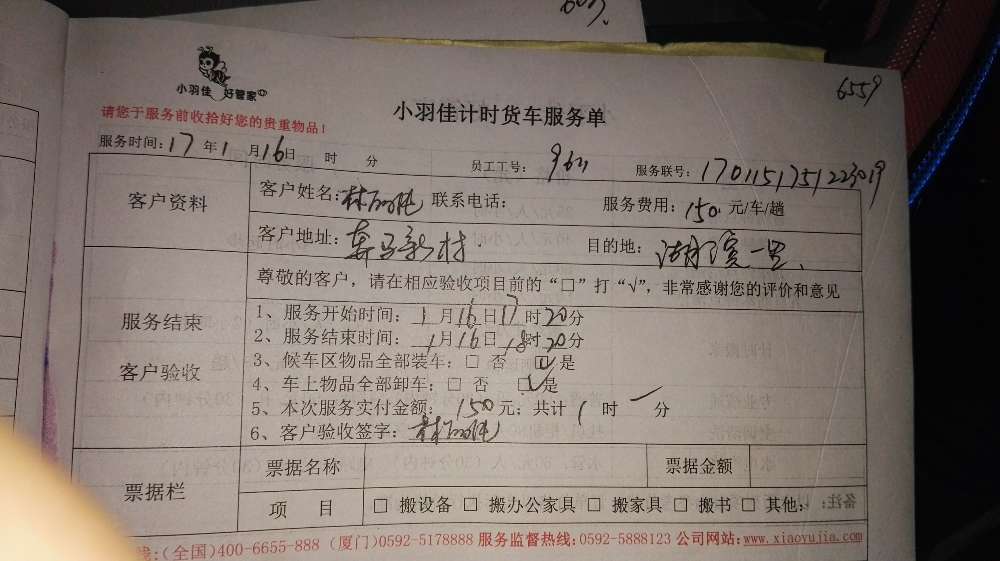 6559
小羽佳 好管家
小羽佳计时货车服务单
请您于服务前收拾好您的贵重物品!
服务时间:17年1月16日 时 分 员工工号: 服务联号:1701151751223019
客户资料
客户姓名:林 联系电话: 服务费用:150元/车/趟
客户地址: 新村 目的地: 一里
服务结束
客户验收
尊敬的客户,请在相应验收项目前的“口”打“√”,非常感谢您的评价和意见
1、服务开始时间:1月16日17时20分
2、服务结束时间:1月16日18时20分
3、候车区物品全部装车:□ 否 ☑是
4、车上物品全部卸车:□ 否 ☑是
5、本次服务实付金额:150元;共计1时一分
6、客户验收签字:林
票据栏
票据名称 票据金额
项 目 □ 搬设备 □ 搬办公家具 □ 搬家具 □ 搬书 □ 其他:
线:(全国)400-6655-888 (厦门)0592-5178888 服务监督热线:0592-5888123 公司网站:www.xiaoyujia.com